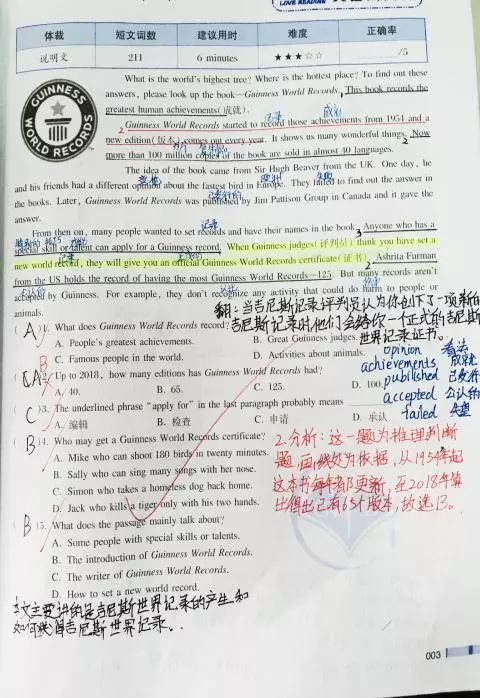 LOVE READING
体裁 短文词数 建议用时 难度 正确率
说明文 211 6 minutes ★★★☆☆ /5
GUINNESS WORLD RECORDS
What is the world's highest tree? Where is the hottest place? To find out these
answers, please look up the book—Guinness World Records. This book records the
greatest human achievements(成就).
记录 成就
2 Guinness World Records started to record those achievements from 1954 and a
new edition(版本) comes out every year. It shows us many wonderful things. 2 Now
more than 100 million copies of the book are sold in almost 40 languages.
The idea of the book came from Sir Hugh Beaver from the UK. One day, he
意见 欧洲 失败
and his friends had a different opinion about the fastest bird in Europe. They failed to find out the answer in
the books. Later, Guinness World Records was published by Jim Pattison Group in Canada and it gave the
answer.
记录
From then on, many people wanted to set records and have their names in the book. 3 Anyone who has a
special skill or talent can apply for a Guinness record. When Guinness judges(评判员) think you have set a
new world record, they will give you an official Guinness World Records certificate(证书). 2 Ashrita Furman
from the US holds the record of having the most Guinness World Records—125. But many records aren't
accepted by Guinness. For example, they don't recognize any activity that could do harm to people or
animals.
翻:当吉尼斯记录评判员认为你创下了一项新的
吉尼斯记录时他们会给你一个正式的吉尼斯
世界记录证书。
( A )1. What does Guinness World Records record?
A. People's greatest achievements. B. Great Guinness judges.
C. Famous people in the world. D. Activities about animals.
B
( A )2. Up to 2018, how many editions has Guinness World Records had?
A. 40. B. 65. C. 125. D. 100.
opinion 看法
achievements 成就
published
accepted 公认的
failed 失望
( C )3. The underlined phrase "apply for" in the last paragraph probably means
A. 编辑 B. 检查 C. 申请 D. 承认
( B )4. Who may get a Guinness World Records certificate?
A. Mike who can shoot 180 birds in twenty minutes.
B. Sally who can sing many songs with her nose.
C. Simon who takes a homeless dog back home.
D. Jack who kills a tiger only with his two hands.
2.分析:这一题为推理判断
题,画线处为依据,从1954年起
这本书每年都更新,至2018年算
出得出已有65个版本,故选B。
( B )5. What does the passage mainly talk about?
A. Some people with special skills or talents.
B. The introduction of Guinness World Records.
C. The writer of Guinness World Records.
D. How to set a new world record.
本文主要讲的是吉尼斯世界记录的产生和
如何获得吉尼斯世界记录。
003